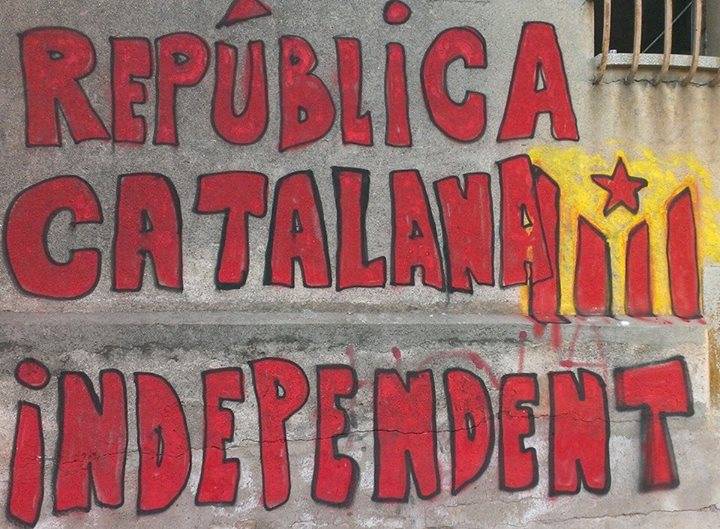 REPÚBLiCA
CATALANA
iNDEPENDENT